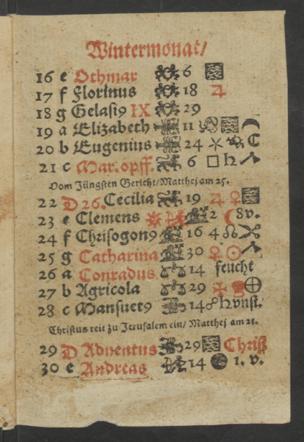 Wintermonat/
16 e Othmar 6
17 f Florinus 18 ♃
18 g Gelasi9 IX 29
19 a Elizabeth 11
20 b Eugenius 24
21 c Mar. opff. 6 □ ♄
Vom Jüngsten Gericht/Matthej am 25.
22 D 26 Cecilia 19 ♃ ♀
23 e Clemens 2 8 v.
24 f Chrisogon9 16 4
25 g Catharina 30 ♀ ☉
26 a Conradus 14 feucht
27 b Agricola 29
28 c Mansuet9 14 ☍ ♄ vnst.
Christus reit zu Jerusalem ein/ Matthej am 21.
29 D Adventus 29 Chriß
30 e Andreas 14 1. v.